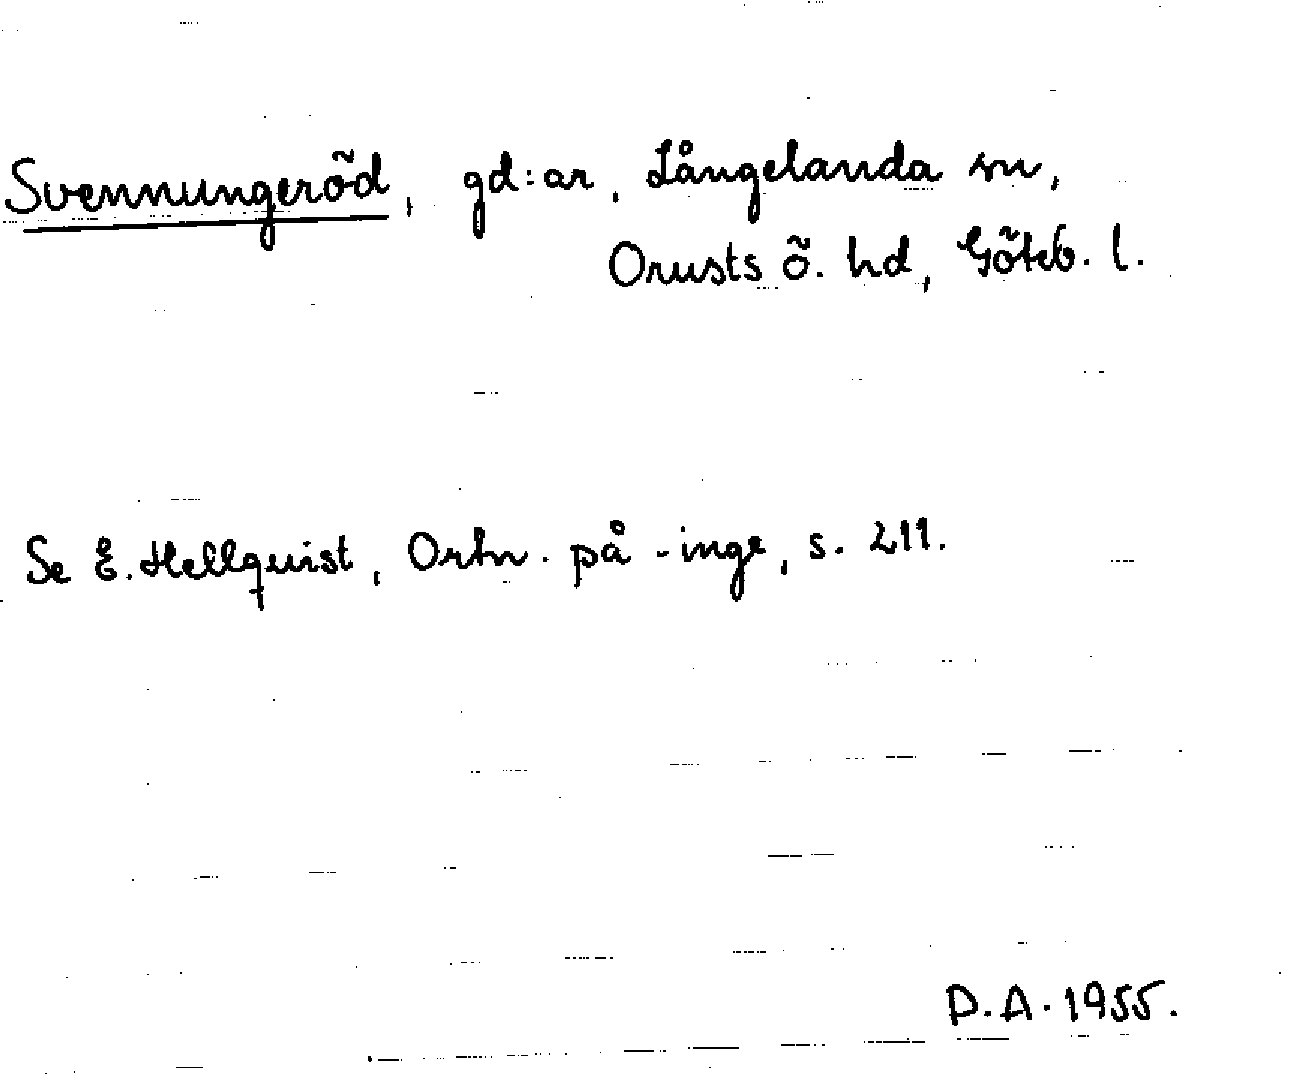 Svennungeröd, gd:ar, Långelanda sn,
Orusts ö. hd, Göteb. l.
Se E. Hellquist, Ortn. på -inge, s. 211.
D.A. 1955.